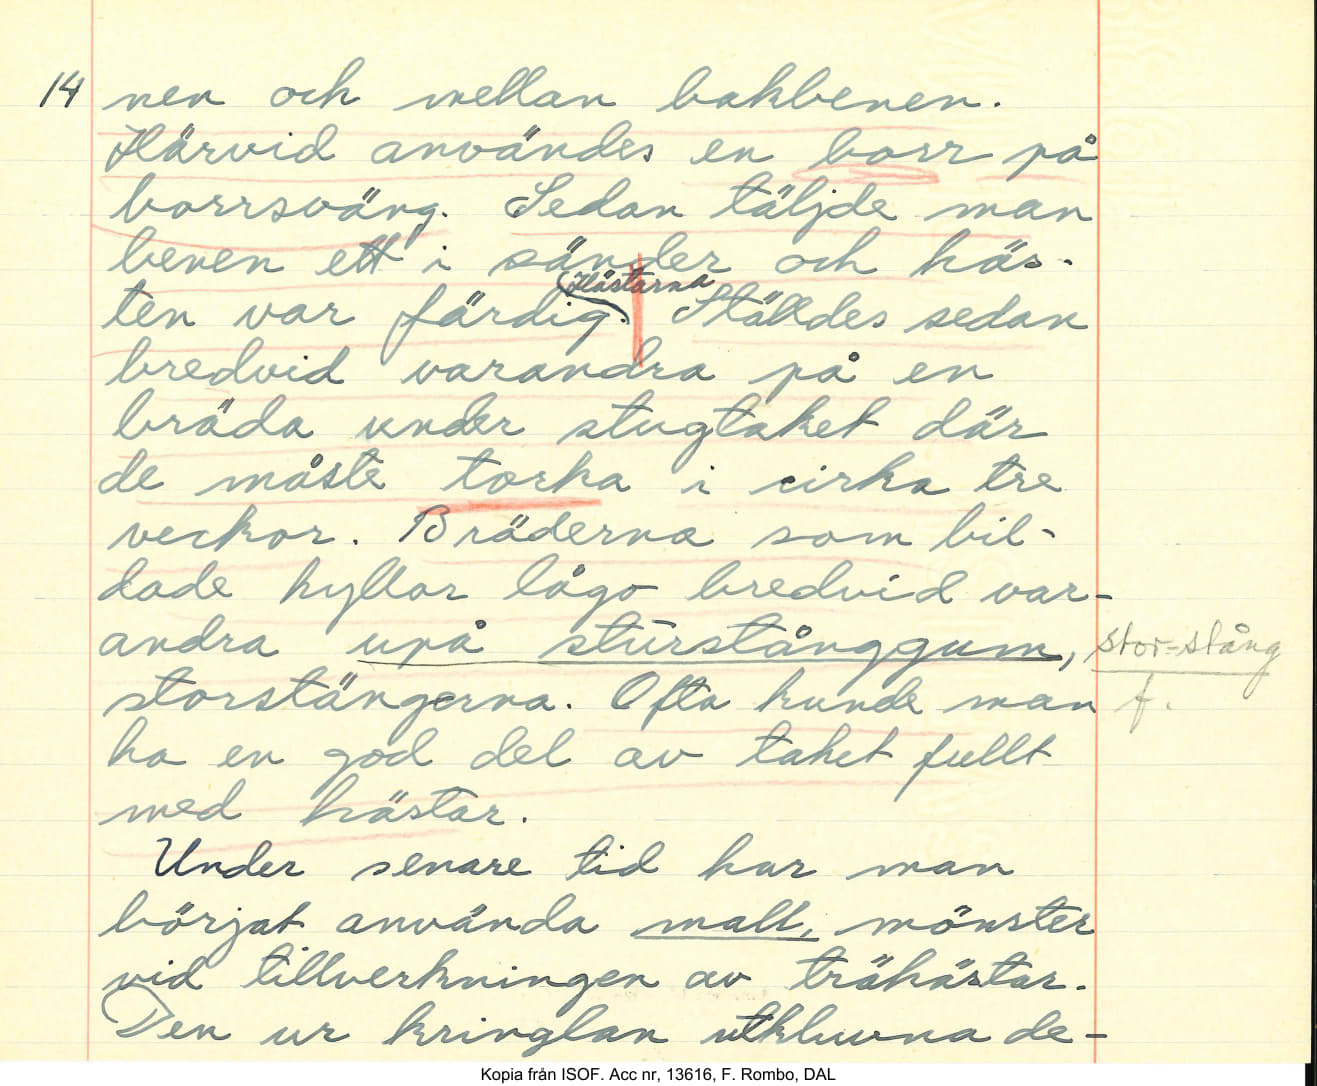 14 nen och mellan bakbenen.
Härvid användes en borr på
borrsväng. Sedan täljde man
benen ett i sänder och häs-
Hästarna
ten var färdig. Ställdes sedan
bredvid varandra på en
bräda under stugtaket där
de måste torka i cirka tre
veckor. Bräderna som bil-
dade hyllor lågo bredvid var-
andra upå stūrstånggum, stor-stång
storstängerna. Ofta kunde man f.
ha en god del av taket fullt
med hästar.
Under senare tid har man
börjat använda mall, mönster
vid tillverkningen av trähästar.
Den ur kringlan utkluvna de-
Kopia från ISOF. Acc nr, 13616, F. Rombo, DAL